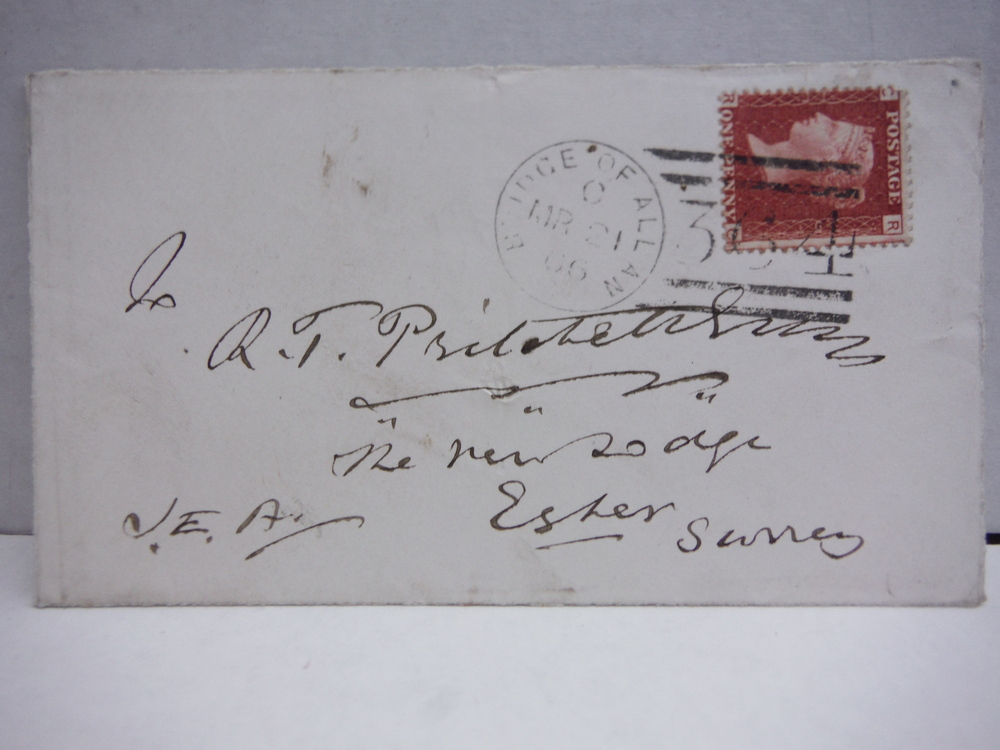 BRIDGE OF ALLAN
C
MR 21
66
POSTAGE
ONE PENNY
R
R
To
R. T. Pritchett Esqre
The New Lodge
Esher Surrey
J. E. A.